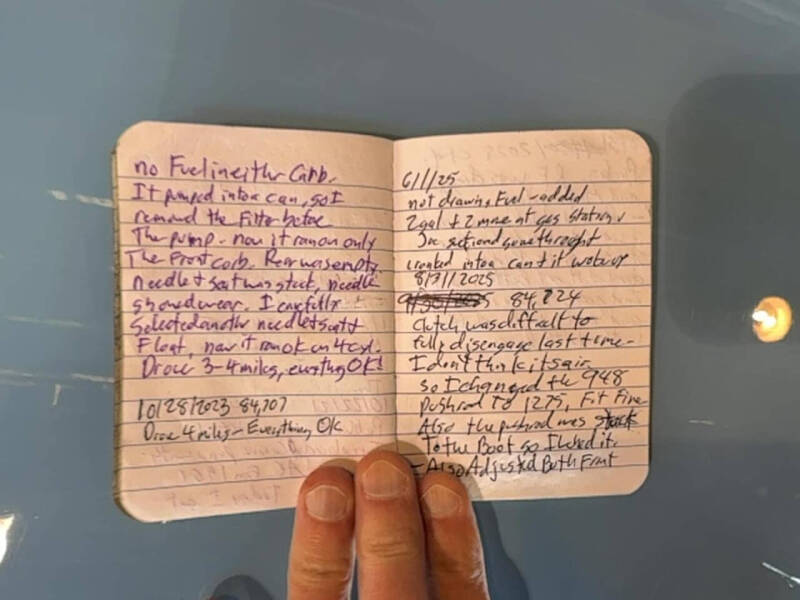 no Fuel in eithr Carb.
It pumped into a can, so I
removed the Filter before
The pump - now it ran on only
The Front carb. Rear was empty.
needle & seat was stuck, needle
showed wear. I carefully
selected another needle & seat &
Float, now it ran OK on 4 cyl.
Drove 3-4 miles, everthing OK!
10/28/2023 84,707
Drove 4 miles - Everything OK
6/1/25
not drawing Fuel - added
2 gal + 2 more at gas station.
cranked into a can & it woke up
8/31/2025
84,724
Clutch was difficult to
fully disengage last time -
I don't think it's air
so I changed the 948
pushrod To 1275, Fit Fine
Also the pushrod was stuck
To the Boot so I lubed it.
- Also Adjusted Both Front